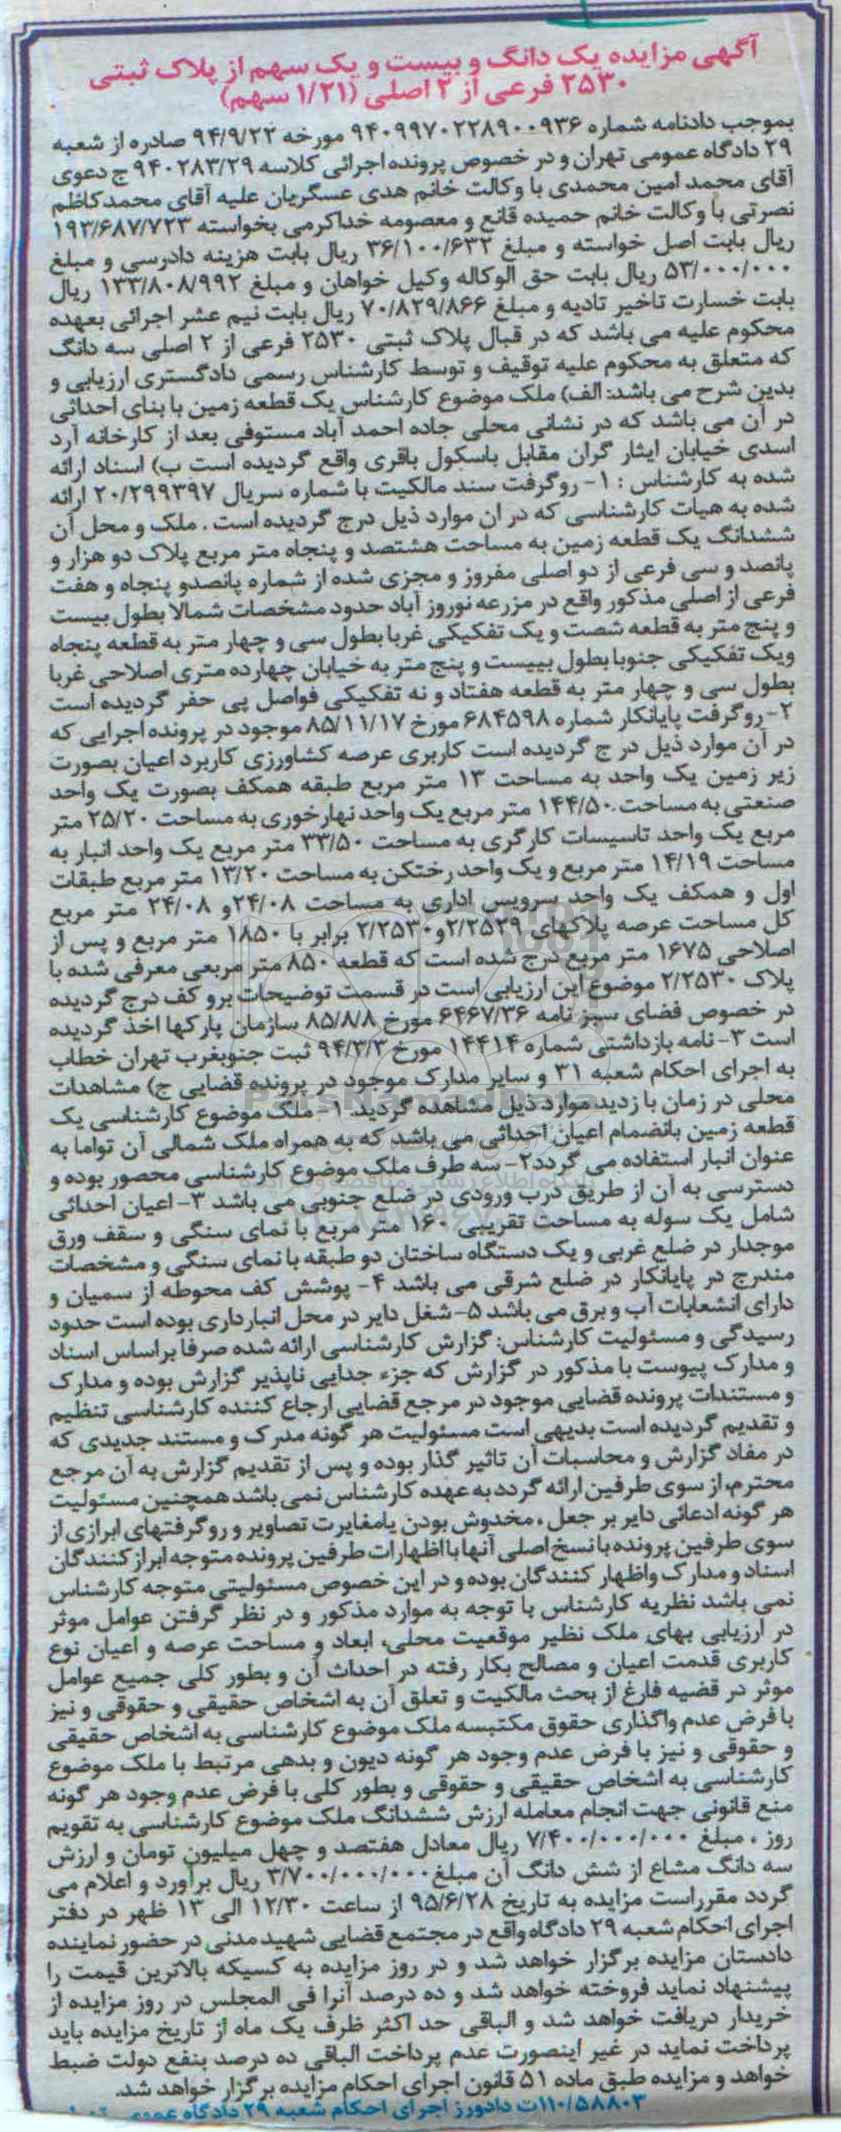 آگهی مزایده یک دانگ و بیست و یک سهم از پلاک ثبتی
۲۵۳۰ فرعی از ۲ اصلی (۱/۲۱ سهم)
بموجب دادنامه شماره ۹۴۰۹۹۷۰۲۲۸۹۰۰۹۳۶ مورخه ۹۴/۹/۲۲ صادره از شعبه
۲۹ دادگاه عمومی تهران و در خصوص پرونده اجرائی کلاسه ۹۴۰۲۸۳/۲۹ ج دعوی
آقای محمد امین محمدی با وکالت خانم هدی عسگریان علیه آقای محمدکاظم
نصرتی با وکالت خانم حمیده قانع و معصومه خداکرمی بخواسته ۱۹۳/۶۸۷/۷۲۳
ریال بابت اصل خواسته و مبلغ ۳۶/۱۰۰/۶۳۲ ریال بابت هزینه دادرسی و مبلغ
۵۳/۰۰۰/۰۰۰ ریال بابت حق الوکاله وکیل خواهان و مبلغ ۱۳۳/۸۰۸/۹۹۲ ریال
بابت خسارت تاخیر تادیه و مبلغ ۷۰/۸۲۹/۸۶۶ ریال بابت نیم عشر اجرائی بعهده
محکوم علیه می باشد که در قبال پلاک ثبتی ۲۵۳۰ فرعی از ۲ اصلی سه دانگ
که متعلق به محکوم علیه توقیف و توسط کارشناس رسمی دادگستری ارزیابی و
بدین شرح می باشد: الف) ملک موضوع کارشناس یک قطعه زمین با بنای احداثی
در آن می باشد که در نشانی محلی جاده احمد آباد مستوفی بعد از کارخانه آرد
اسدی خیابان ایثار گران مقابل باسکول باقری واقع گردیده است ب) اسناد ارائه
شده به کارشناس : ۱- روگرفت سند مالکیت با شماره سریال ۲۰/۲۹۹۳۹۷ ارائه
شده به هیات کارشناسی که در ان موارد ذیل درج گردیده است . ملک و محل آن
ششدانگ یک قطعه زمین به مساحت هشتصد و پنجاه متر مربع پلاک دو هزار و
پانصد و سی فرعی از دو اصلی مفروز و مجزی شده از شماره پانصدو پنجاه و هفت
فرعی از اصلی مذکور واقع در مزرعه نوروز آباد حدود مشخصات شمالا بطول بیست
و پنج متر به قطعه شصت و یک تفکیکی غربا بطول سی و چهار متر به قطعه پنجاه
ویک تفکیکی جنوبا بطول بییست و پنج متر به خیابان چهارده متری اصلاحی غربا
بطول سی و چهار متر به قطعه هفتاد و نه تفکیکی فواصل پی حفر گردیده است
۲- روگرفت پایانکار شماره ۶۸۴۵۹۸ مورخ ۸۵/۱۱/۱۷ موجود در پرونده اجرایی که
در آن موارد ذیل در ج گردیده است کاربری عرصه کشاورزی کاربرد اعیان بصورت
زیر زمین یک واحد به مساحت ۱۳ متر مربع طبقه همکف بصورت یک واحد
صنعتی به مساحت ۱۴۴/۵۰ متر مربع یک واحد نهارخوری به مساحت ۲۵/۲۰ متر
مربع یک واحد تاسیسات کارگری به مساحت ۳۳/۵۰ متر مربع یک واحد انبار به
مساحت ۱۴/۱۹ متر مربع و یک واحد رختکن به مساحت ۱۳/۲۰ متر مربع طبقات
اول و همکف یک واحد سرویس اداری به مساحت ۲۴/۰۸ و ۲۴/۰۸ متر مربع
کل مساحت عرصه پلاکهای ۲/۲۵۲۹ و ۲/۲۵۳۰ برابر با ۱۸۵۰ متر مربع و پس از
اصلاحی ۱۶۷۵ متر مربع درج شده است که قطعه ۸۵۰ متر مربعی معرفی شده با
پلاک ۲/۲۵۳۰ موضوع این ارزیابی است در قسمت توضیحات برو کف درج گردیده
در خصوص فضای سبز نامه ۶۴۶۷/۳۶ مورخ ۸۵/۸/۸ سازمان پارکها اخذ گردیده
است ۳- نامه بازداشتی شماره ۱۴۴۱۴ مورخ ۹۴/۳/۳ ثبت جنوبغرب تهران خطاب
به اجرای احکام شعبه ۳۱ و سایر مدارک موجود در پرونده قضایی ج) مشاهدات
محلی در زمان با زدید موارد ذیل مشاهده گردید. ۱- ملک موضوع کارشناسی یک
قطعه زمین بانضمام اعیان احداثی می باشد که به همراه ملک شمالی آن تواما به
عنوان انبار استفاده می گردد۲- سه طرف ملک موضوع کارشناسی محصور بوده و
دسترسی به آن از طریق درب ورودی در ضلع جنوبی می باشد ۳- اعیان احداثی
شامل یک سوله به مساحت تقریبی ۱۶۰ متر مربع با نمای سنگی و سقف ورق
موجدار در ضلع غربی و یک دستگاه ساختان دو طبقه با نمای سنگی و مشخصات
مندرج در پایانکار در ضلع شرقی می باشد ۴- پوشش کف محوطه از سمیان و
دارای انشعابات آب و برق می باشد ۵- شغل دایر در محل انبارداری بوده است حدود
رسیدگی و مسئولیت کارشناس: گزارش کارشناسی ارائه شده صرفا براساس اسناد
و مدارک پیوست با مذکور در گزارش که جزء جدایی ناپذیر گزارش بوده و مدارک
و مستندات پرونده قضایی موجود در مرجع قضایی ارجاع کننده کارشناسی تنظیم
و تقدیم گردیده است بدیهی است مسئولیت هر گونه مدرک و مستند جدیدی که
در مفاد گزارش و محاسبات آن تاثیر گذار بوده و پس از تقدیم گزارش به آن مرجع
محترم، از سوی طرفین ارائه گردد به عهده کارشناس نمی باشد همچنین مسئولیت
هر گونه ادعائی دایر بر جعل ، مخدوش بودن یامغایرت تصاویر و روگرفتهای ابرازی از
سوی طرفین پرونده با نسخ اصلی آنها با اظهارات طرفین پرونده متوجه ابراز کنندگان
اسناد و مدارک واظهار کنندگان بوده و در این خصوص مسئولیتی متوجه کارشناس
نمی باشد نظریه کارشناس با توجه به موارد مذکور و در نظر گرفتن عوامل موثر
در ارزیابی بهای ملک نظیر موقعیت محلی، ابعاد و مساحت عرصه و اعیان نوع
کاربری قدمت اعیان و مصالح بکار رفته در احداث آن و بطور کلی جمیع عوامل
موثر در قضیه فارغ از بحث مالکیت و تعلق آن به اشخاص حقیقی و حقوقی و نیز
با فرض عدم واگذاری حقوق مکتبسه ملک موضوع کارشناسی به اشخاص حقیقی
و حقوقی و نیز با فرض عدم وجود هر گونه دیون و بدهی مرتبط با ملک موضوع
کارشناسی به اشخاص حقیقی و حقوقی و بطور کلی با فرض عدم وجود هر گونه
منع قانونی جهت انجام معامله ارزش ششدانگ ملک موضوع کارشناسی به تقویم
روز ، مبلغ ۷/۴۰۰/۰۰۰/۰۰۰ ریال معادل هفتصد و چهل میلیون تومان و ارزش
سه دانگ مشاع از شش دانگ آن مبلغ ۳/۷۰۰/۰۰۰/۰۰۰ ریال برآورد و اعلام می
گردد مقرراست مزایده به تاریخ ۹۵/۶/۲۸ از ساعت ۱۲/۳۰ الی ۱۳ ظهر در دفتر
اجرای احکام شعبه ۲۹ دادگاه واقع در مجتمع قضایی شهید مدنی در حضور نماینده
دادستان مزایده برگزار خواهد شد و در روز مزایده به کسیکه بالاترین قیمت را
پیشنهاد نماید فروخته خواهد شد و ده درصد آنرا فی المجلس در روز مزایده از
خریدار دریافت خواهد شد و الباقی حد اکثر ظرف یک ماه از تاریخ مزایده باید
پرداخت نماید در غیر اینصورت عدم پرداخت الباقی ده درصد بنفع دولت ضبط
خواهد و مزایده طبق ماده ۵۱ قانون اجرای احکام مزایده برگزار خواهد شد.
۱۱۰/۵۸۸۰۳ت دادورز اجرای احکام شعبه ۲۹ دادگاه عمومی